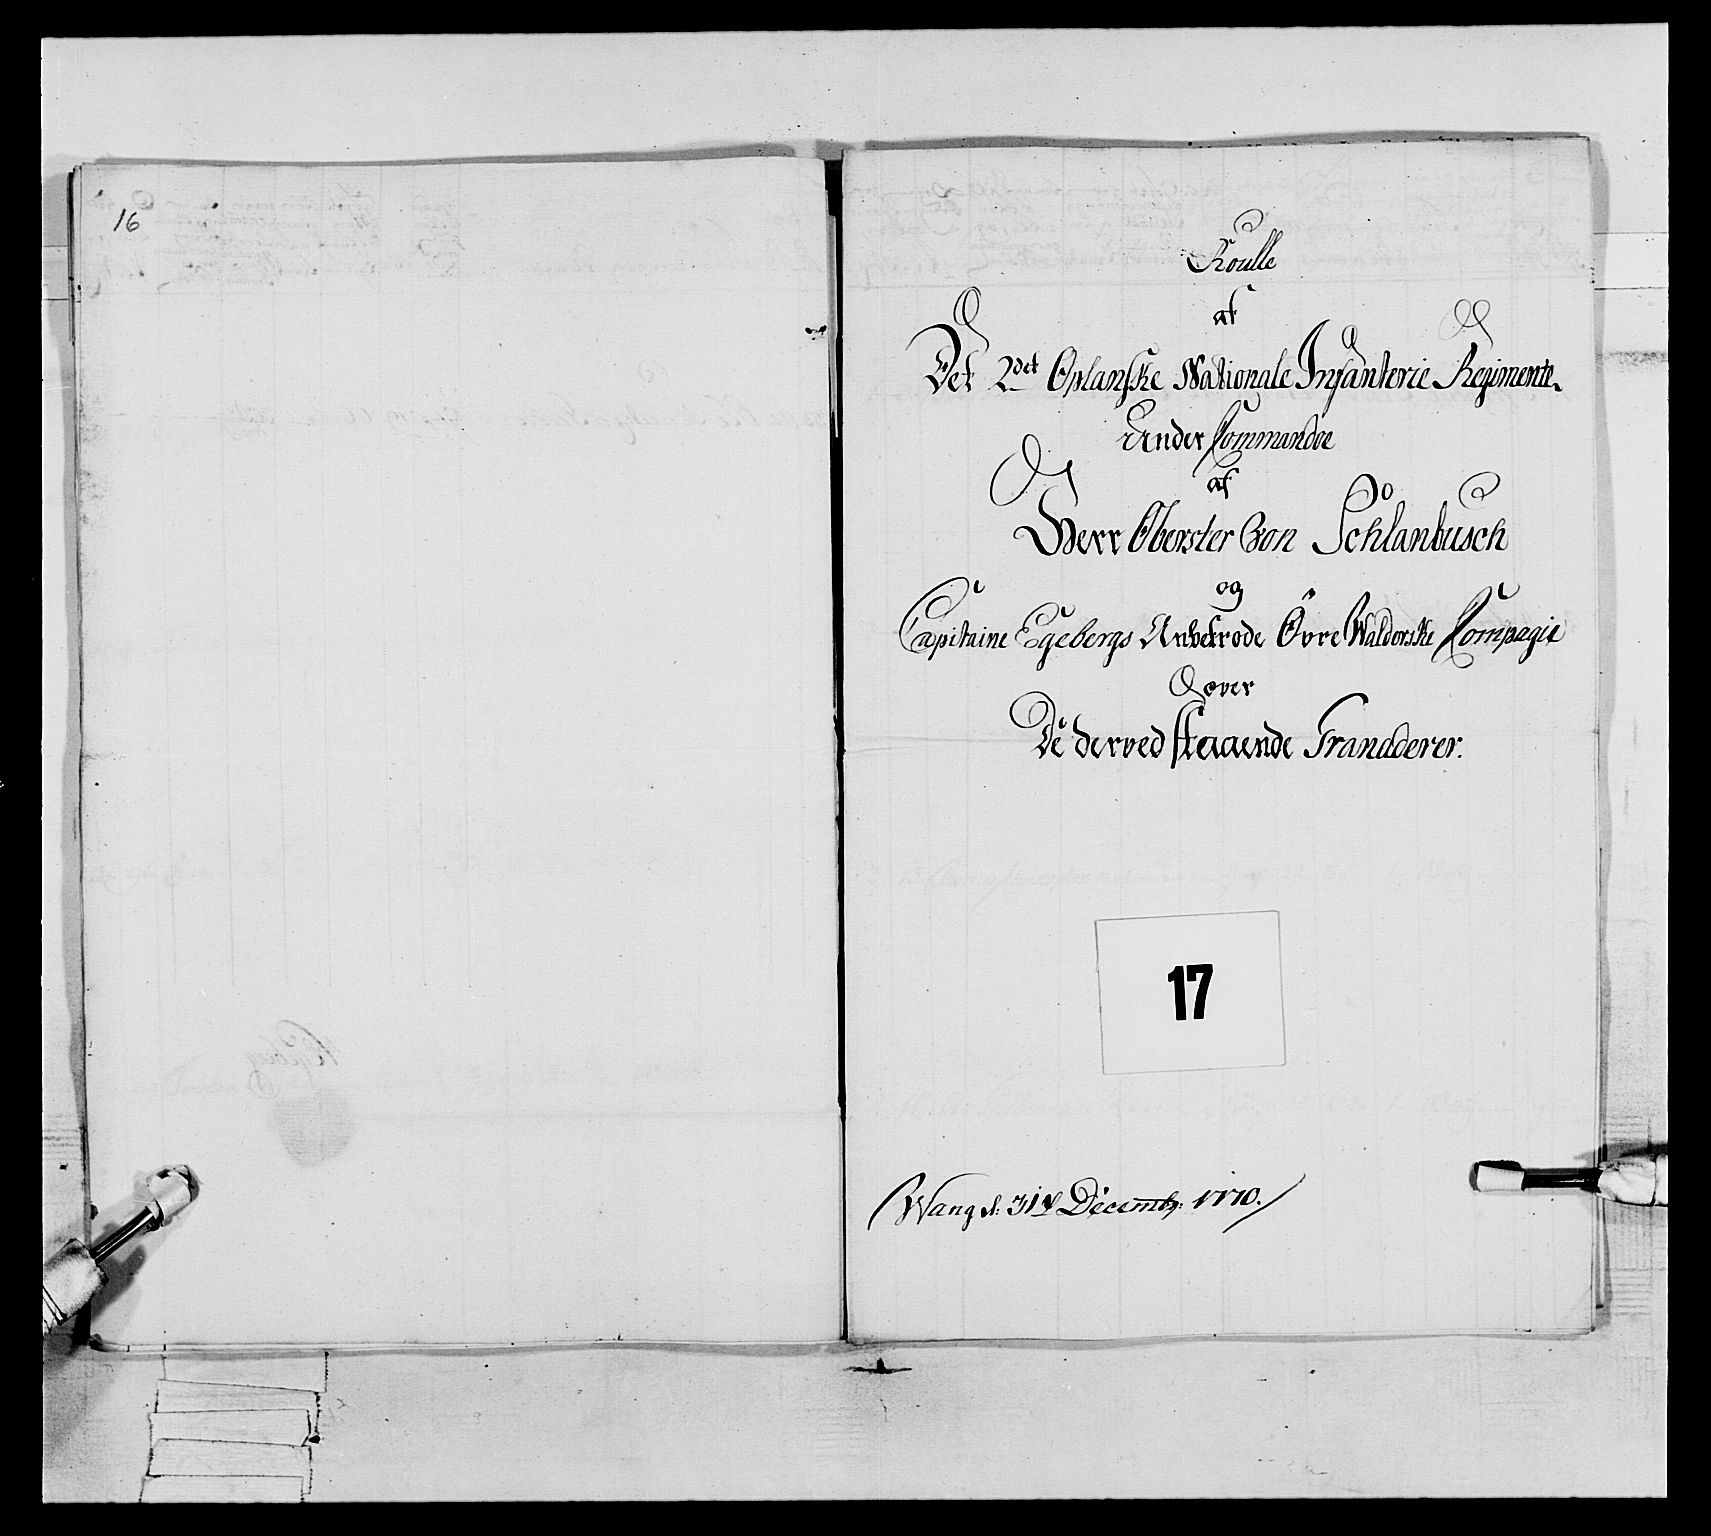 16
Roulle
af
Det 2det Oplanske Nationale Infanterie Regimente.
Under Commandoe
af
Herr Oberster Von Schlanbusch
og
Capitaine Egebergs Anbetrode Övre Waldorske Compagie
over
De derved staaende Granaderer.
17
Wang d: 31te Decembr: 1770.